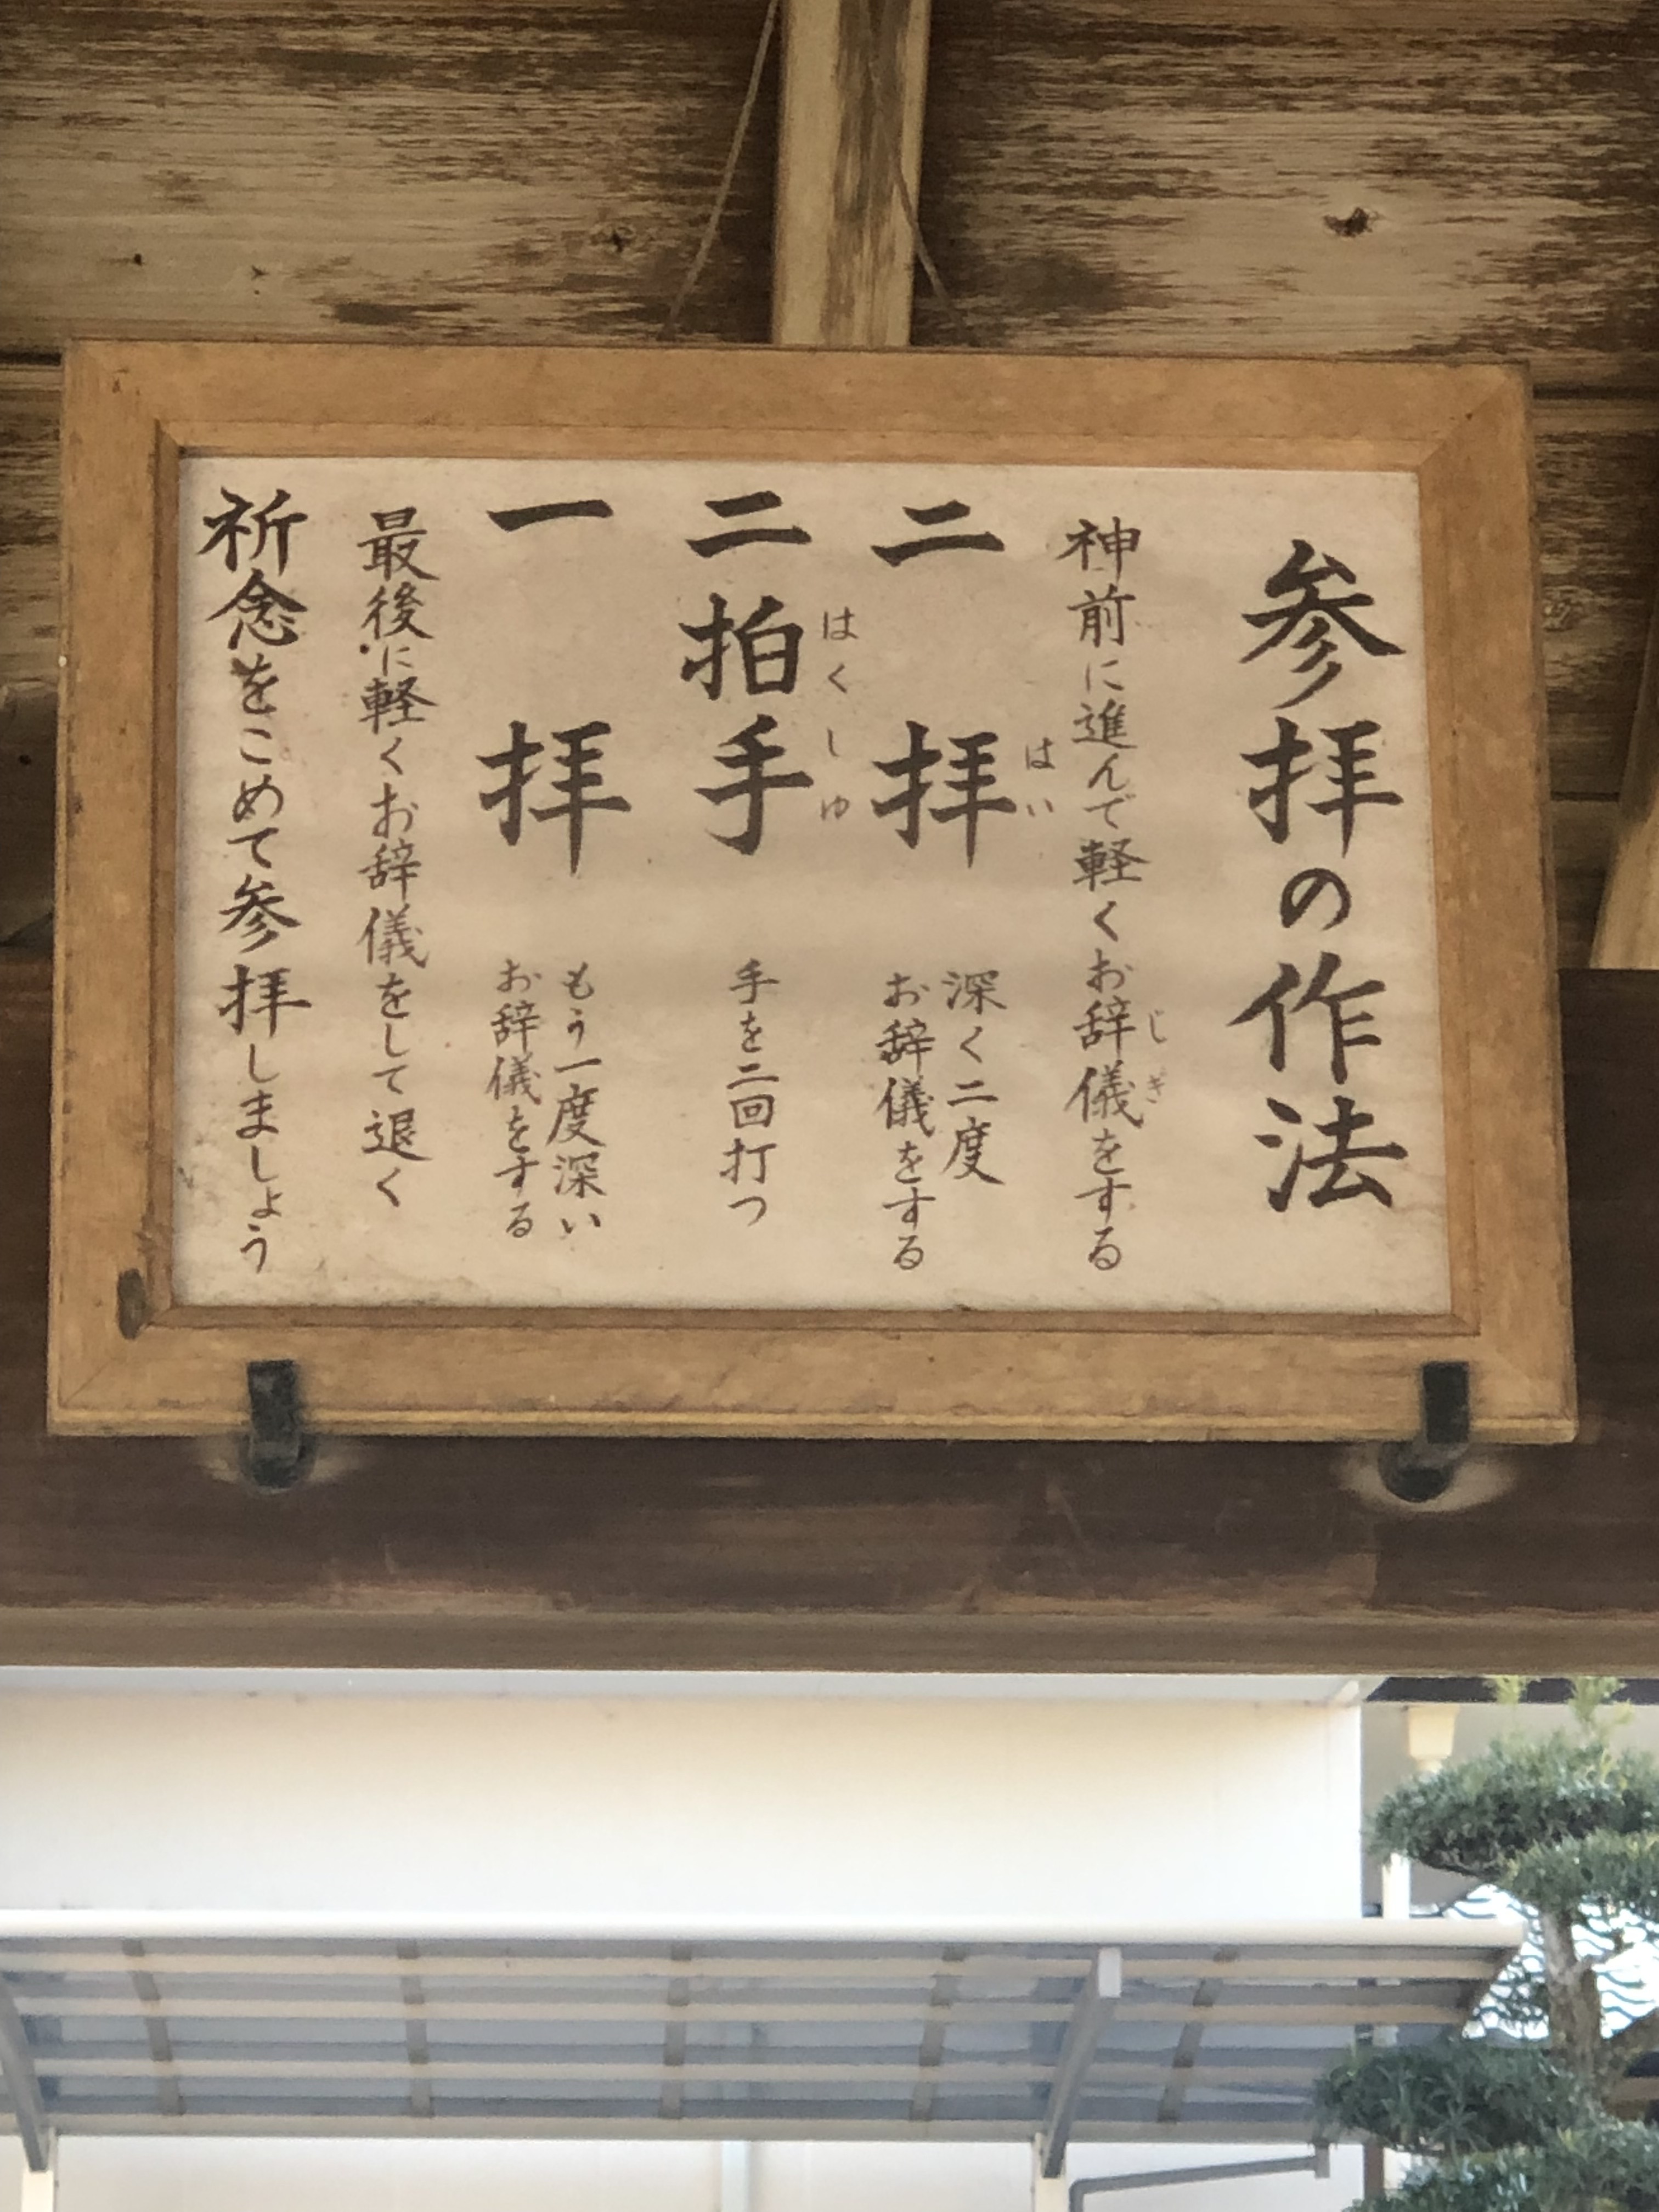 参拝の作法
神前に進んで軽くお辞儀をする
じぎ
二拝
はい
深く二度
お辞儀をする
二拍手
はくしゆ
手を二回打つ
一拝
もう一度深い
お辞儀をする
最後に軽くお辞儀をして退く
祈念をこめて参拝しましょう